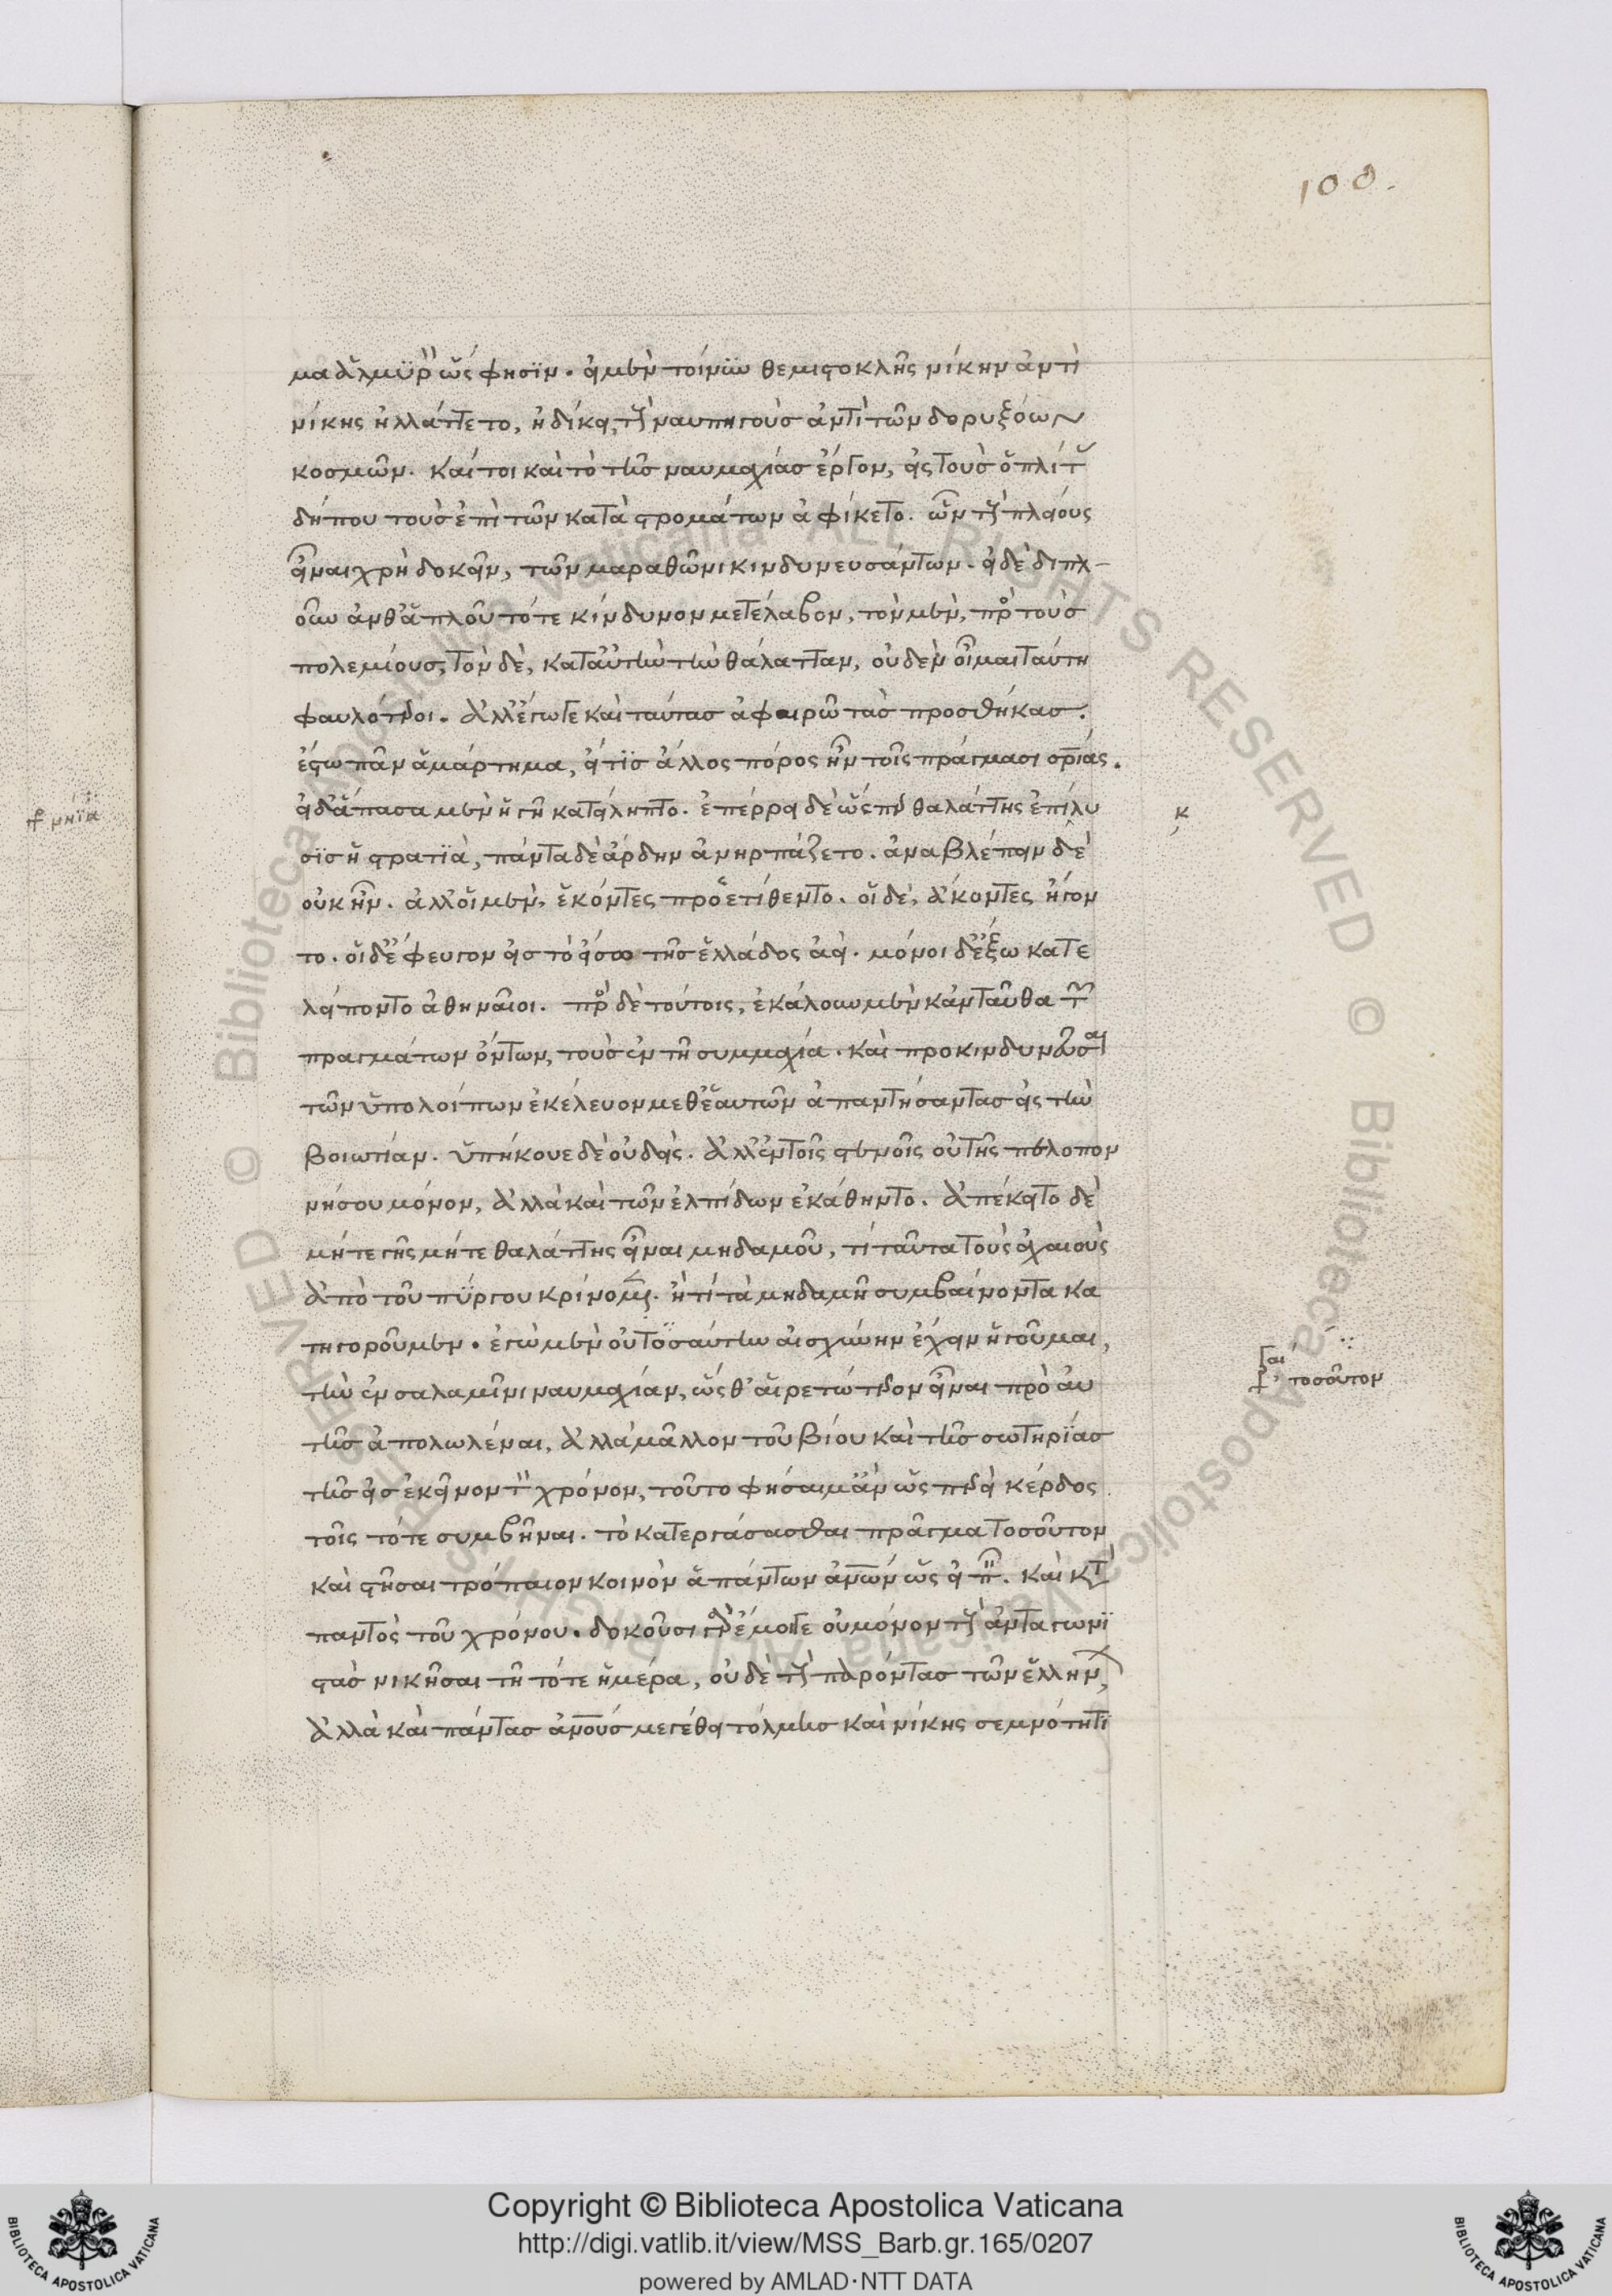 100.
μα ἁλμυρὸν ὥς φησιν. εἰ μὲν τοίνυν θεμιστοκλῆς νίκην ἀντὶ
νίκης ἠλλάττετο, ἠδίκει τοὺς ναυπηγοὺς ἀντὶ τῶν δορυξόων
κοσμῶν. καίτοι καὶ τὸ τῆς ναυμαχίας ἔργον, εἰς τοὺς ὁπλίτας
δήπου τοὺς ἐπὶ τῶν καταστρομάτων ἀφίκετο. ὧν τοὺς πλείους
εἶναι χρὴ δοκεῖν, τῶν μαραθῶνι κινδυνευσάντων. εἰ δὲ διπλ-
οῦν ἀνθ' ἁπλοῦ τότε κίνδυνον μετέλαβον, τὸν μὲν, πρὸς τοὺς
πολεμίους, τὸν δὲ, κατ' αὐτὴν τὴν θάλατταν, οὐδὲν οἶμαι ταύτη
φαυλότεροι. ἀλλ' ἔγωγε καὶ ταύτας ἀφαιρῶ τὰς προσθήκας.
ἔστω πᾶν ἁμάρτημα, εἴ τις ἄλλος πόρος ἦν τοῖς πράγμασι σωτηρίας.
εἰ δ' ἅπασα μὲν ἡ γῆ κατείληπτο. ἐπέρρει δὲ ὥσπερ θαλάττης ἐπίλυ
σις ἡ στρατιὰ, πάντα δὲ ἄρδην ἀνηρπάζετο. ἀναβλέπειν δὲ
οὐκ ἦν. ἀλλ' οἱ μὲν, ἑκόντες προσετίθεντο. οἱ δὲ, ἄκοντες ἤγον
το. οἱ δ' ἔφευγον εἰς τὸ εἴσω τῆς ἑλλάδος ἀεί. μόνοι δ' ἔξω κατε
λείποντο ἀθηναῖοι. πρὸς δὲ τούτοις, ἐκάλουν μὲν κἀνταῦθα τῶν
πραγμάτων ὄντων, τοὺς ἐν τῆ συμμαχία. καὶ προκινδυνεῦσαι
τῶν ὑπολοίπων ἐκέλευον μεθ' ἑαυτῶν ἀπαντήσαντας εἰς τὴν
βοιωτίαν. ὑπήκουε δὲ οὐδείς. ἀλλ' ἐν τοῖς στενοῖς οὐ τῆς πελοπον
νήσου μόνον, ἀλλὰ καὶ τῶν ἐλπίδων ἐκάθηντο. ἀπέκειτο δὲ
μήτε γῆς μήτε θαλάττης εἶναι μηδαμοῦ, τί ταῦτα τοὺς ἀχαιοὺς
ἀπὸ τοῦ πύργου κρίνομεν. ἢ τί τὰ μηδαμῆ συμβαίνοντα κα
τηγοροῦμεν. ἐγὼ μὲν οὐ τοσαύτην αἰσχύνην ἔχειν ἡγοῦμαι,
τὴν ἐν σαλαμῖνι ναυμαχίαν, ὥσθ' αἱρετώτερον εἶναι πρὸ αὐ
τῆς ἀπολωλέναι, ἀλλὰ μᾶλλον τοῦ βίου καὶ τῆς σωτηρίας
τῆς εἰς ἐκεῖνον τὸν χρόνον, τοῦτο φήσαιμ' ἂν ὥσπερεὶ κέρδος
τοῖς τότε συμβῆναι. τὸ κατεργάσασθαι πρᾶγμα τοσοῦτον
καὶ στῆσαι τρόπαιον κοινὸν ἁπάντων ἀνθρώπων ὡς εἰπεῖν. καὶ κατὰ
παντὸς τοῦ χρόνου. δοκοῦσι γὰρ ἔμοιγε οὐ μόνον τοὺς ἀνταγωνι
στὰς νικῆσαι τῆ τότε ἡμέρα, οὐδὲ τοὺς παρόντας τῶν ἑλλήνων,
ἀλλὰ καὶ πάντας ἀνθρώπους μεγέθει τόλμης καὶ νίκης σεμνότητι
κ
τοσοῦτον
Copyright © Biblioteca Apostolica Vaticana
http://digi.vatlib.it/view/MSS_Barb.gr.165/0207
powered by AMLAD·NTT DATA